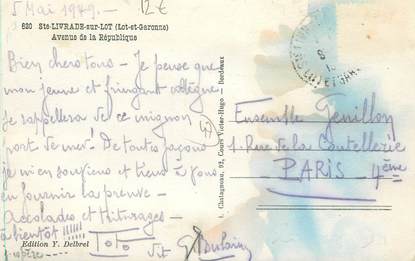 5 Mai 1949.
12€
620 Ste-LIVRADE-sur-LOT (Lot-et-Garonne)
Avenue de la République
Bien chers tous - Je pense que
mon jeune et fringant collègue
se rappellera de ce mignon
port de mer! De toutes façons
je m'en souviens et tiens à vous
en fournir la preuve -
Accolades et
à bientôt !!!!!
TOTO
dit
Edition Y. Delbrel
I. Chatagneau, 72, Cours Victor-Hugo - Bordeaux
LOT ET GAR
Ensemble Génillon
1. Rue de la Coutellerie
PARIS 4ème